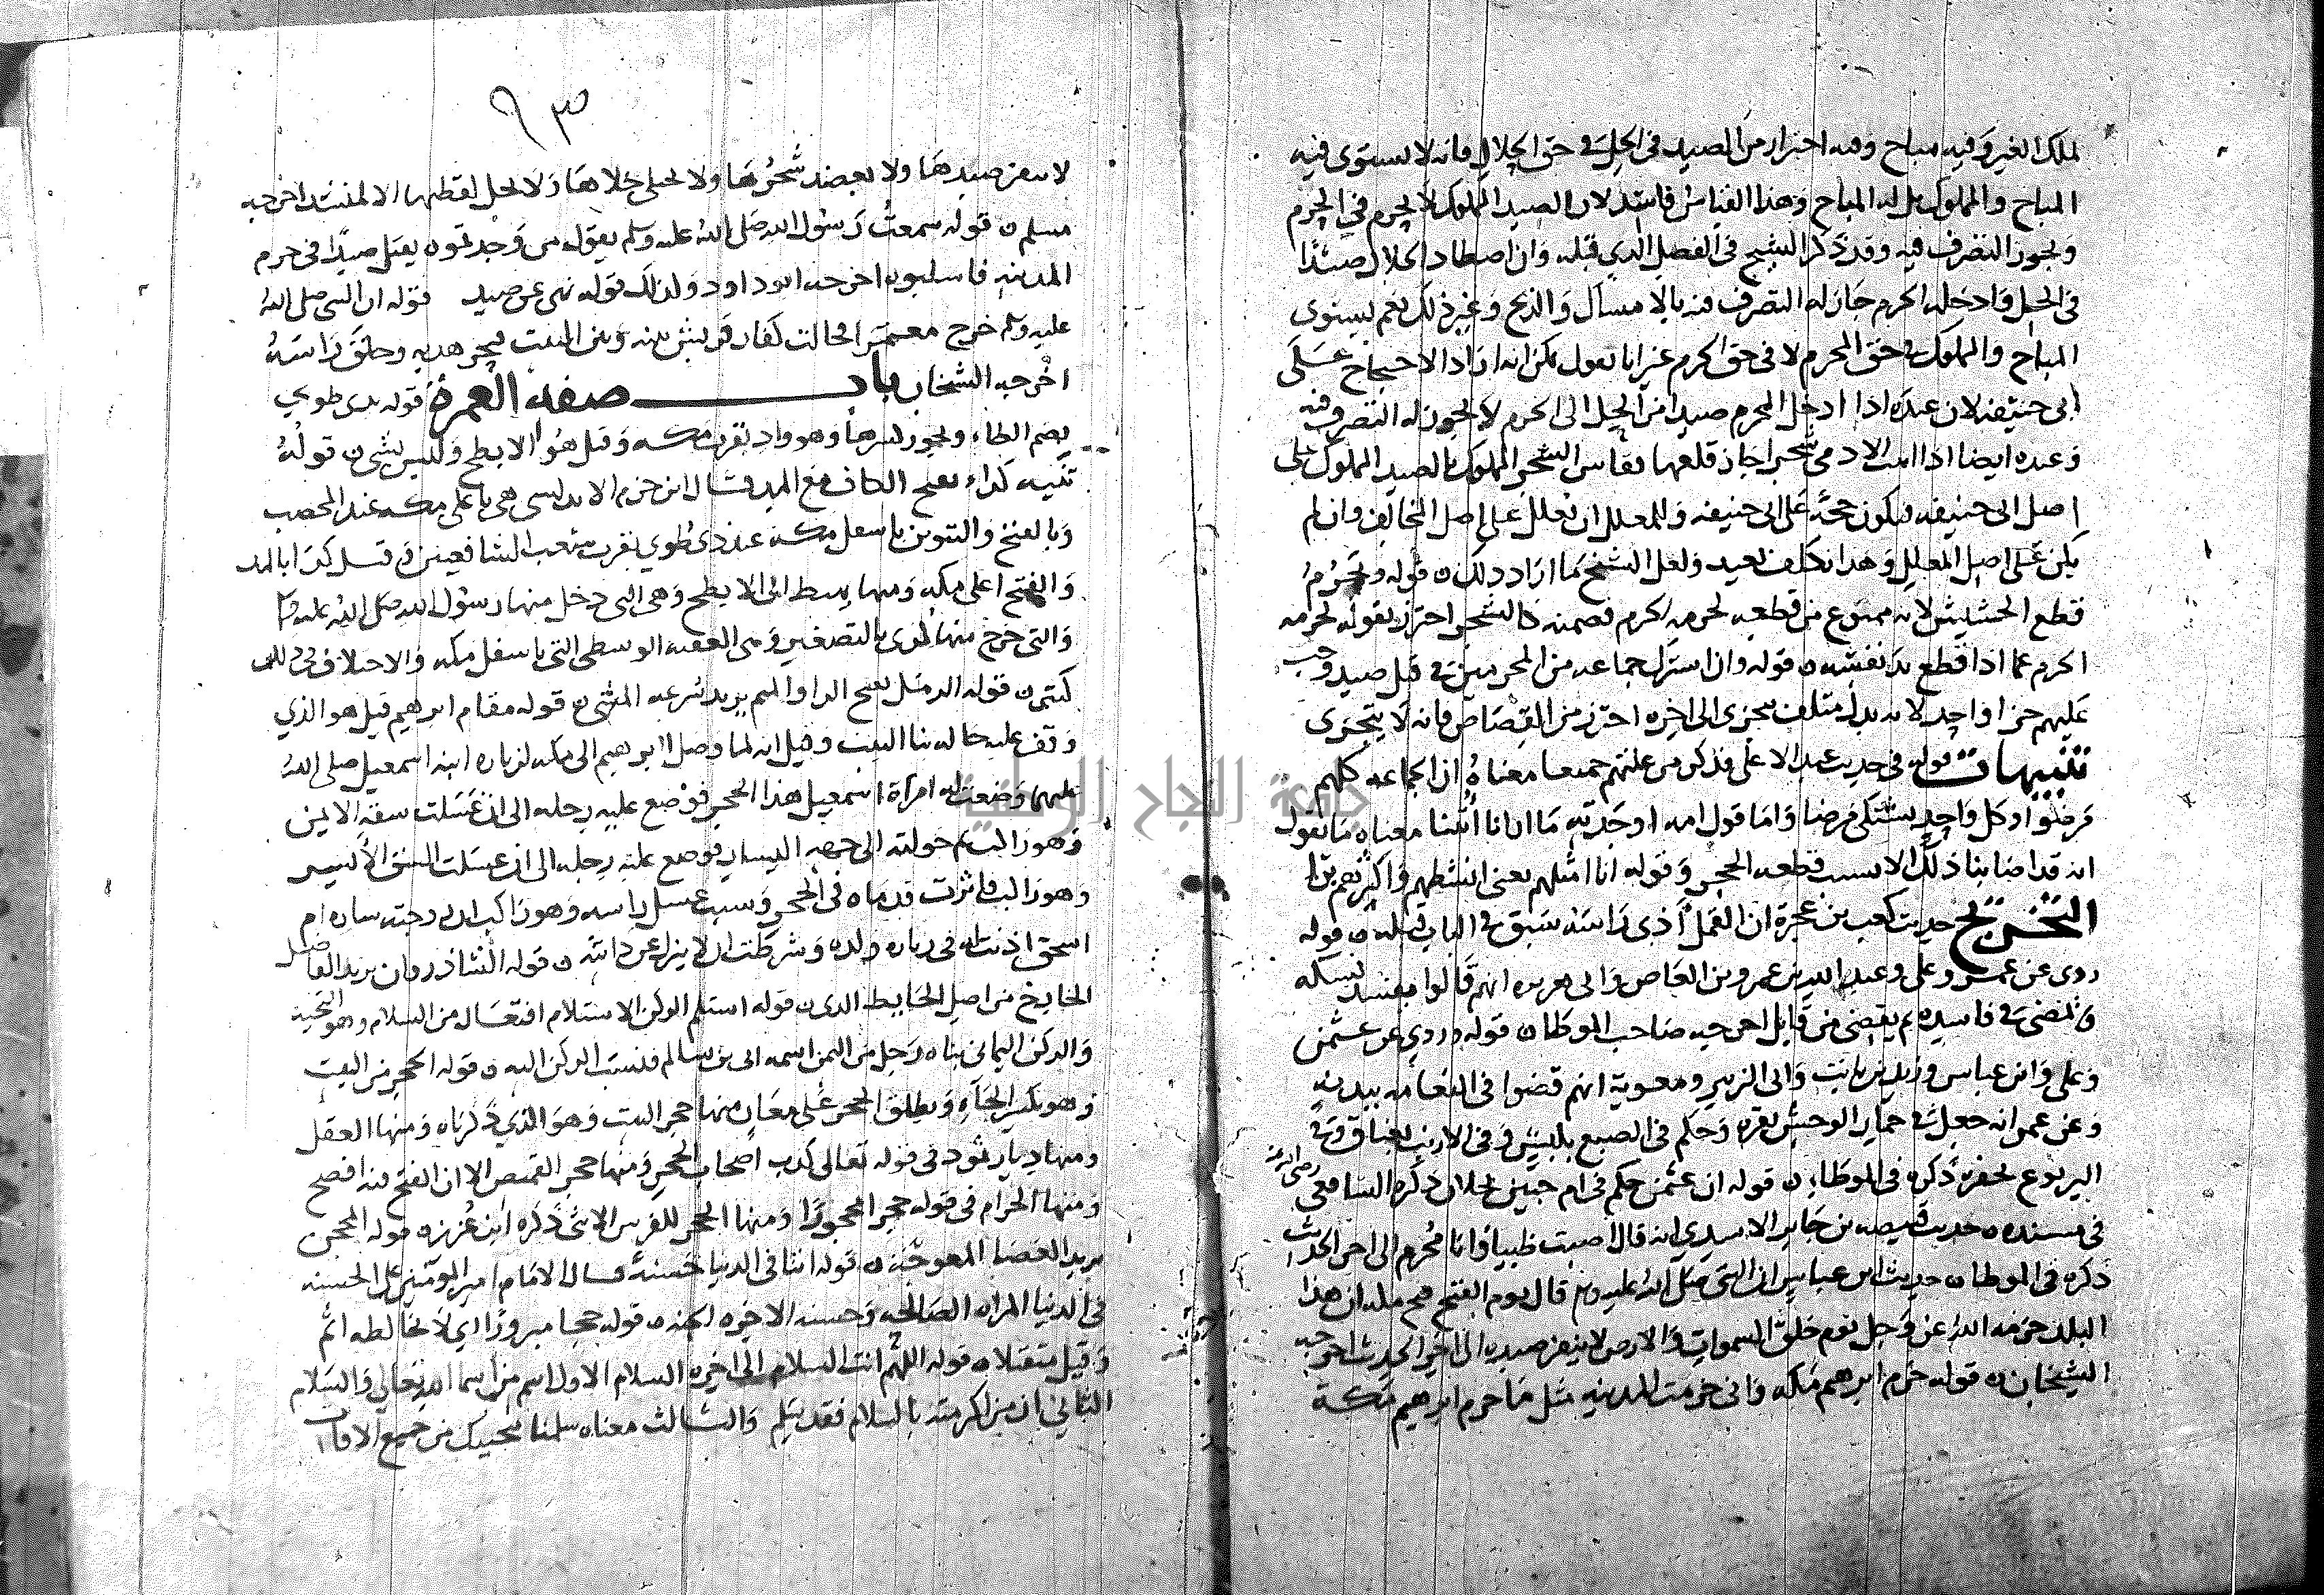 لملك الغير وفيه مباح وفيه احتراز من الصيد في الحل في حق الحلال فانه لا يستوي فيه
المباح والمملوك بل له المباح وهذا القياس فاسد لان الصيد المملوك لا يحرم في الحرم
ويجوز التصرف فيه وقد ذكر الشيخ في الفصل الذي قبله وان اصطاد الحلال صيدًا
في الحل فادخله الحرم جاز له التصرف فيه بالامساك والذبح وغير ذلك نعم يستوي
المباح والمملوك في حق المحرم لا في حق الحرم غير انا نقول يمكن انه اراد الاحتجاج على
ابي حنيفه لان عنده اذا ادخل المحرم صيدا من الحل الى الحرم لا يجوز له التصرف فيه
وعنده ايضا اذا انبت الادمي شجرا جاز قلعها فقاس الشجر المملوك بالصيد المملوك على
اصل ابي حنيفه فيكون حجة على ابي حنيفه وللمعلل ان يعلل على اصل المخالف وان لم
يكن على اصل المعلل وهذا تكلف بعيد ولعل الشيخ ما اراد ذلك ن قوله ويحرم
قطع الحشيش لانه ممنوع من قطعه لحرمه الحرم فضمنه كالشجر احترز بقوله لحرمه
الحرم عما اذا قطع يد نفسه ن قوله وان اشترك جماعه من المحرمين في قتل صيد وجب
عليهم جزا واحد لانه بدل متلف يتجزى الى اخره احترز من القصاص فانه لا يتجزى
تنبيهات قوله في حديث عبد الاعلى فذكر من علتهم جميعا معناه ان الجماعه كلهم
مرضوا وكل واحد يشتكي مرضا واما قول امه اوجدته ما ابانا أتينا معناه ما نقول
انه قد اصابنا ذلك الا بسبب قطعه الحجر وقوله انا امثلهم يعني انشطهم واكثرهم برا
التخريج حديث كعب بن عجرة ان القمل أذى راسه سبق في الباب قبله ن قوله
روي عن عمر وعلي وعبد الله بن عمرو بن العاص وابي هريره انهم قالوا من يفسد نسكه
ويمضي في فاسده ثم يقضي من قابل اخرجه صاحب الموطا ن قوله وروي عن عثمن
وعلي وابن عباس وزيد بن ثابت وابن الزبير ومعوية انهم قضوا في النعامه ببدنه
وعن عمر انه جعل في حمار الوحش بقره وحكم في الضبع بكبش وفي الارنب بعناق وفي
اليربوع بجفرة ذكره في الموطاء ن قوله ان عثمن حكم في ام حبين بحلان ذكره الشافعي رضي الله عنه
في مسنده ن حديث قبيصه بن جابر الاسدي انه قال اصبت ظبيا وانا محرم الى اخر الحديث
ذكره في الموطا ن حديث ابن عباس ان النبي صلى الله عليه وسلم قال يوم الفتح فتح مكه ان هذا
البلد حرمه الله عز وجل يوم خلق السموات والارض لا ينفر صيده الى اخر الحديث اخرجه
الشيخان ن قوله حرم ابرهيم مكه واني حرمت المدينه مثل ما حرم ابرهيم مكة
٩٣
لا ينفر صيدها ولا يعضد شجرها ولا يختلى خلاها ولا تحل لقطتها الا لمنشد اخرجه
مسلم ن قوله سمعتُ رسول الله صلى الله عليه وسلم يقول من وجدتموه يقتل صيدًا في حرم
المدينه فاسلبوه اخرجه ابو داود وكذلك قوله نهى عن صيد قوله ان النبي صلى الله
عليه وسلم خرج معتمرا فحالت كفار قريش بينه وبين البيت فنحر هديه وحلق راسه
اخرجه الشيخان باب صفة العمرة قوله بذي طوي
بضم الطاء ويجوز كسرها وهو واد بقرب مكه وقيل هو الابطح وليس بشي ن قوله
ثنيه كداء بفتح الكاف مع المد قال ابن حزم الاندلسي هي باعلى مكه عند المحصب
وبالفتح والتنوين باسفل مكه عند ذي طوي بقرب شعب الشافعيين وقيل كدا بالمد
والفتح اعلى مكه ومنها يهبط الى الابطح وهي التي دخل منها رسول الله صلى الله عليه وسلم
والتي خرج منها كدي بالتصغير وهي العقبه الوسطى التي باسفل مكه والاختلاف في ذلك
كثير ن قوله الرمل بفتح الرا والميم يريد سرعه المشي ن قوله مقام ابرهيم قيل هو الذي
وقف عليه حاله بنا البيت وقيل انه لما وصل ابرهيم الى مكه لزياره ابنه اسمعيل صلى الله
عليهما وضعت له امرأة اسمعيل هذا الحجر فوضع عليه رجله الى ان غسلت شقه الايمن
وهو راكب ثم حولته الى جهه اليسار فوضع عليه رجله الى ان غسلت الشق الأيسر
وهو راكب فاثرت قدماه في الحجر وسبب غسل راسه وهو راكب ان زوجته ساره ام
اسحق اذنت له في زياره ولده وشرطت ان لا ينزل عن دابته ن قوله الشاذروان يريد الفاضل
الخارج من اصل الحايط الذي ن قوله استلم الركن الاستلام افتعال من السلام وهو التحيه
والركن اليماني بناه رجل من اليمن اسمه ابي بن سالم فنسب الركن اليه ن قوله الحجر من البيت
وهو بكسر الحاء ويطلق الحجر على معان منها حجر البيت وهو الذي ذكرناه ومنها العقل
ومنها ديار ثمود في قوله تعالى كذب اصحاب الحجر ومنها حجر القميص الا ان الفتح فيه افصح
ومنها الحرام في قوله حجرا محجورا ومنها الحجر للفرس الانثى ذكره ابن عزيز ن قوله المحجن
يريد العصا المعوجه ن قوله اتنا في الدنيا حسنة قال الامام امير المومنين علي الحسنه
في الدنيا المراه الصالحه وحسنه الاخره الجنه ن قوله حجا مبرورا اي لا يخالطه اثم
وقيل متقبلا ن قوله اللهم انت السلام الى اخره السلام الاول اسم من اسما الله تعالى والسلام
الثاني ان من اكرمته بالسلام فقد سلم والثالث معناه سلمنا بتحيتك من جميع الافات
جامعة النجاح الوطنية